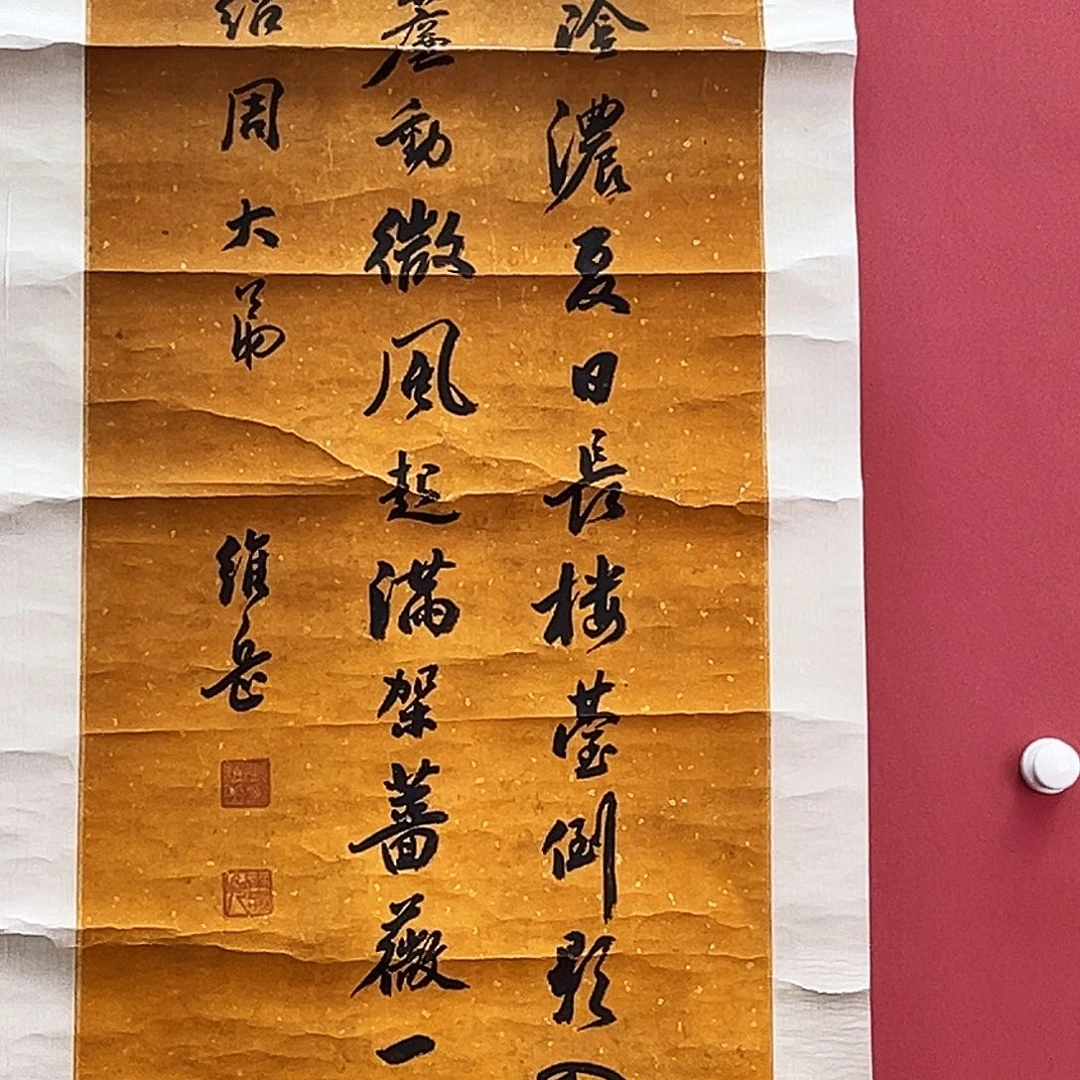 陰濃夏日長樓臺倒影
簾動微風起滿架薔薇一
紹周大弟
維岳